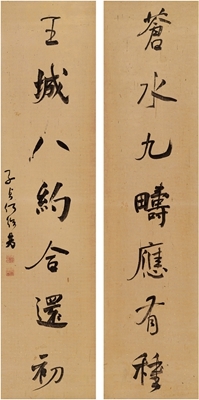 蒼水九疇應有種
王城八約合還初
子貞何紹基